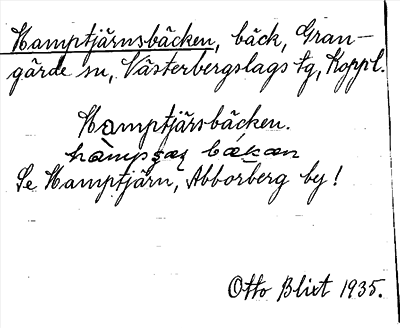 Hamptjärnsbäcken, bäck, Gran-
gärde sn, Västerbergslags tg, Koppl.
Hamptjärsbäcken.
bäkan
Se Hamptjärn, Abborberg by!
Otto Blixt 1935.